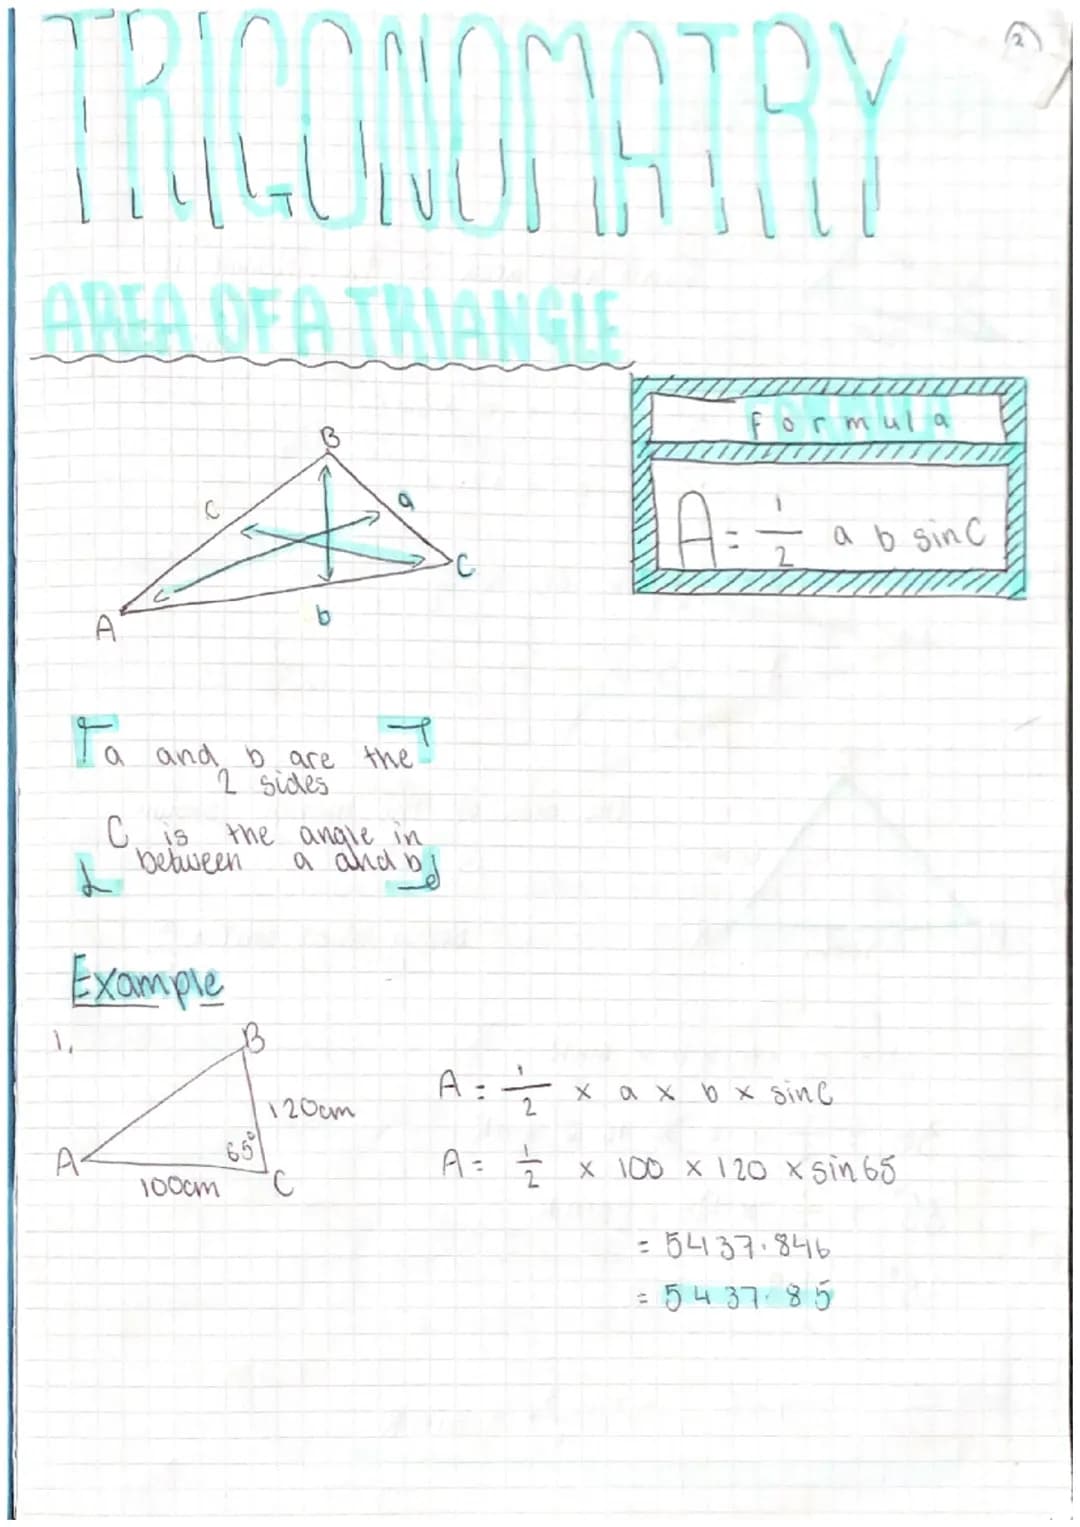 TRIGONOMATRY
2
AREA OF A TRIANGLE
Formula
A = 1/2 a b sin C
B
c
a
C
b
A
a and b are the
2 sides
C is the angle in
between a and b
Example
1.
B
120cm
65°
A
100cm
C
A = 1/2 x a x b x sin C
A = 1/2 x 100 x 120 x sin 65
= 5437.846
= 5437.85